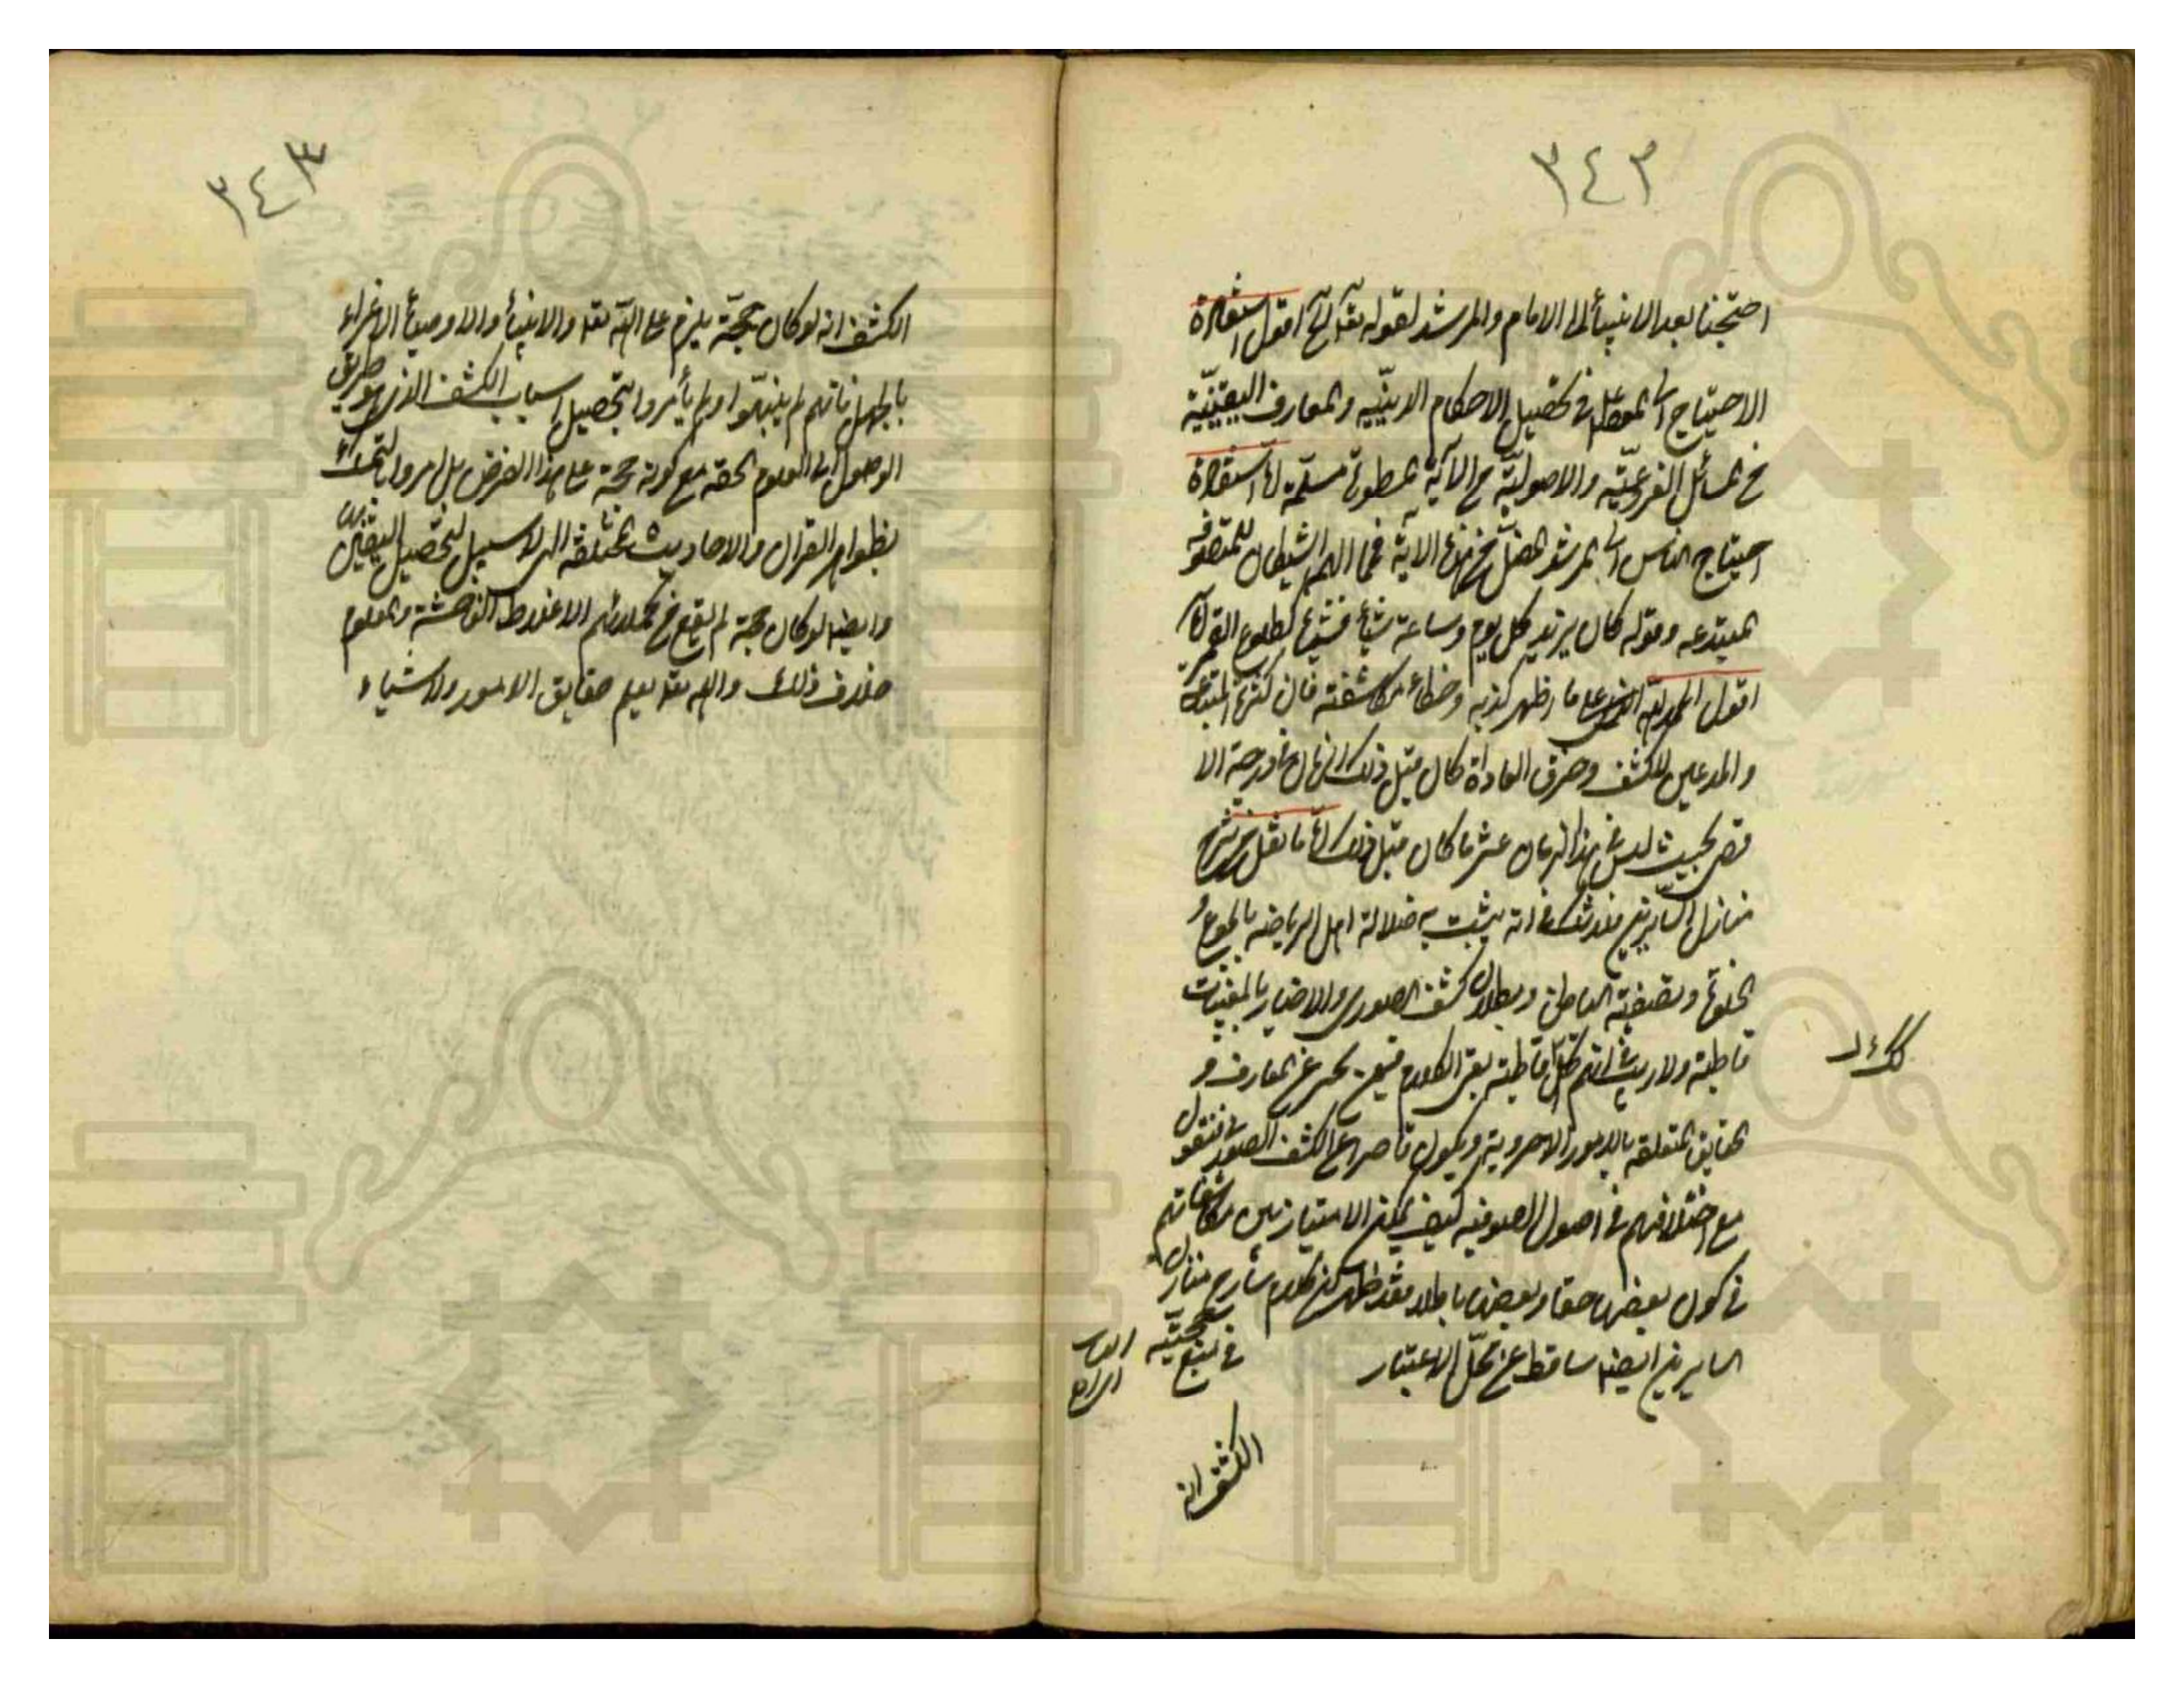 ٣٤٢
احتجنا بعد الانبيأ الى الامام والمرشد لقوله تعا الخ اقول استفادة
الاحتياج الى المعلم فى تحصيل الاحكام الدينيّه والمعارف اليقينيّة
من المسائل الفروعيّه والاصوليّة من الآية المسطورة مسلمة لا استفادة
احتياج الناس الى المرشد المضل من هذه الآية فما الهم الشيطان للمتصوفه
المبتدعه وقوله كان يرتد كل يوم وساعة شيأ فشيأ كطلوع القمر الخ
اقول الحمد لله على ما اظهر كذبه وخطاء مكاشفته فان كثرة المبتدعه
والمدعين للكشف وخرق العاداة كان قبل ذلك الزمان فى درجة الا
قصى بحيث ليس فى هذا الزمان عشر ما كان قبل ذلك لا ما نقل من شرح
منازل السايرين فلا شك فى انه يثبت به ضلالة اهل الرياضه بالجوع و
الخلوة وتصفية الباطن وبطلان كشف الصورى والاخبار بالمغيبات
قاطبة ولا ريب انهم قاطبة بقر الكلام فيمن يخبر عن المعارف و
الحقايق المتعلقه بالامور الاخروية ويكون قاصرا عن الكشف الصورى فنقول
مع اختلافهم فى اصول الصوفيه كيف يمكن الامتياز بين مكاشفاتهم
فى كون بعضها حقا وبعضها باطلا فقد ظهر ان كلام شارح منازل
السايرين ايضا ساقط عن محلّ الاعتبار
فى حجيّه
الكشف انه
٣٤٣
الكشف انه لو كان حجّة يلزم على الله تعا والانبيأ والاوصيأ الاغراء
بالجهل فانهم لم ينبّهوا ولم يأمروا بتحصيل اسباب الكشف الذى هو طريق
الوصول الى العلوم الحقه مع كونه حجة على هذا الفرض بل امروا بالتمسك
بظواهر القران والاحاديث المختلفه التى لا سبيل لتحصيل اليقين بها
وايضا لو كان حجة لم يقع فى كلماتهم الاغلاط الفاحشة والمعلوم
خلاف ذلك والله تعا يعلم حقايق الامور والاشياء